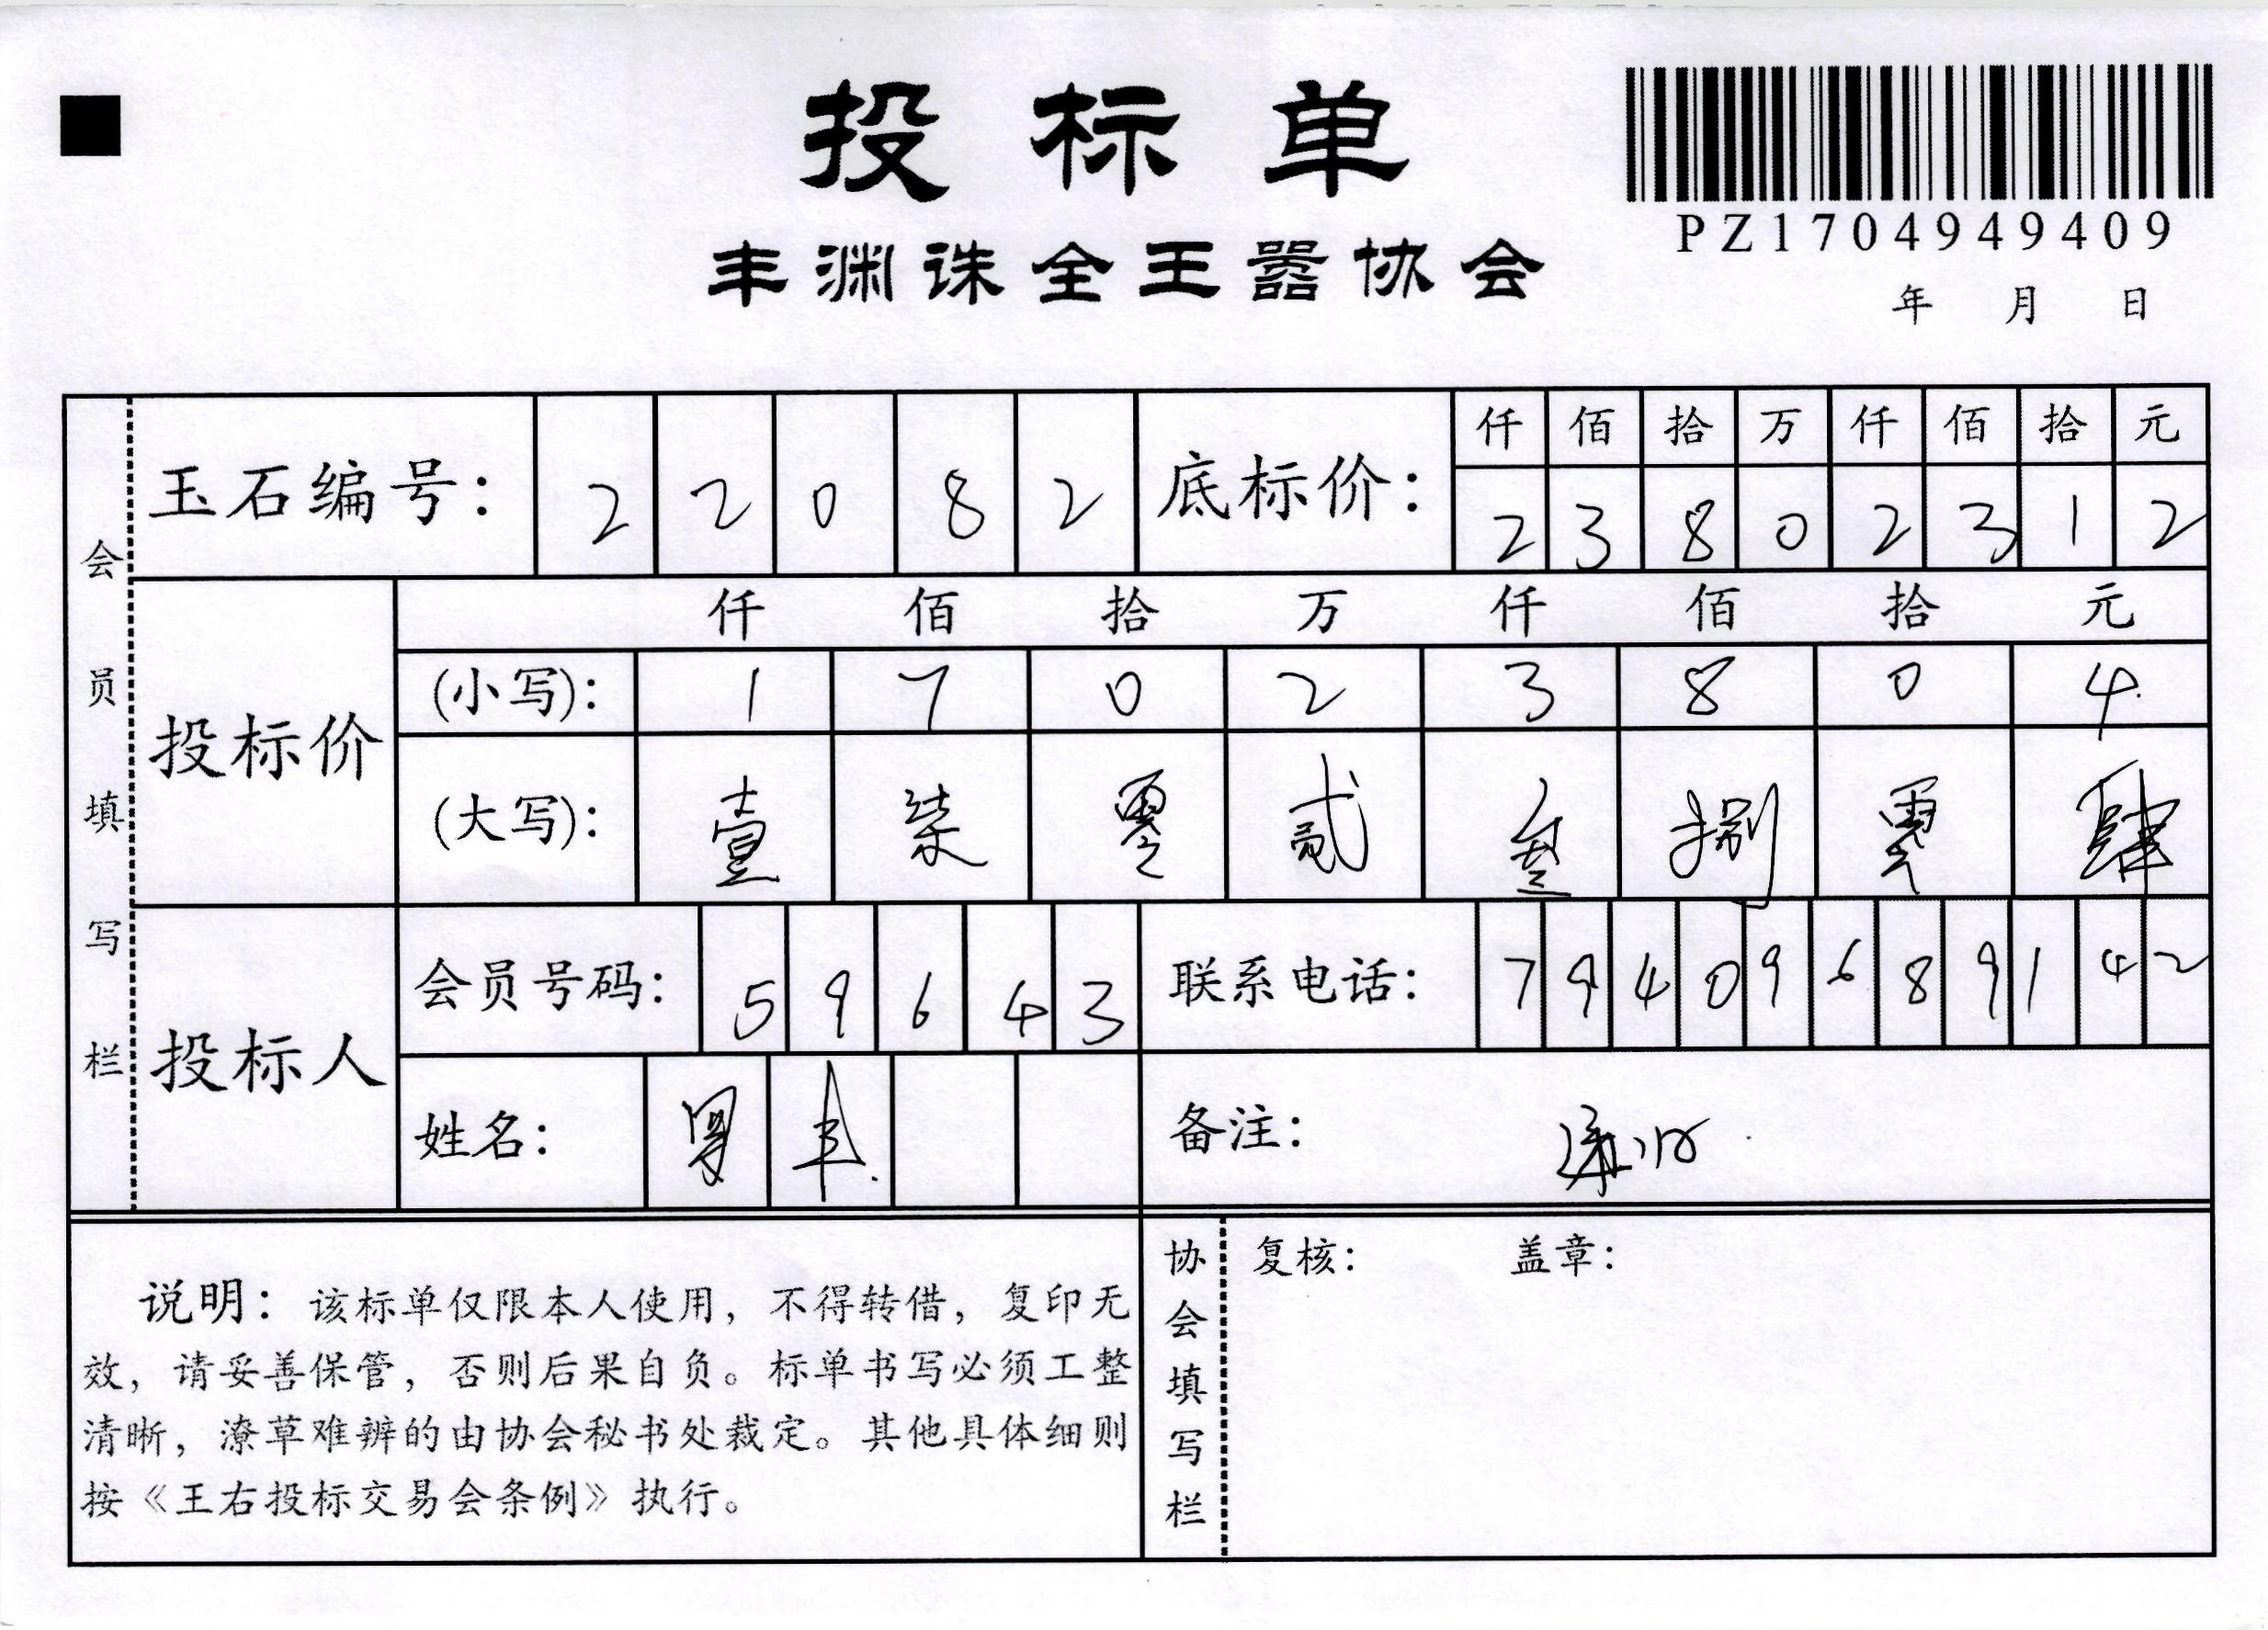 投标单
丰渊诛全王嚣协会
PZ1704949409
年 月 日
会员填写栏
玉石编号： 2 2 0 8 2
底标价： 仟 佰 拾 万 仟 佰 拾 元
2 3 8 0 2 3 1 2
投标价
仟 佰 拾 万 仟 佰 拾 元
(小写)： 1 7 0 2 3 8 0 4
(大写)： 壹 柒 零 贰 叁 捌 零 肆
投标人
会员号码： 5 9 6 4 3
联系电话： 7 9 4 0 9 6 8 9 1 4 2
姓名：
备注：
说明：该标单仅限本人使用，不得转借，复印无
效，请妥善保管，否则后果自负。标单书写必须工整
清晰，潦草难辨的由协会秘书处裁定。其他具体细则
按《王右投标交易会条例》执行。
协会填写栏
复核： 盖章：